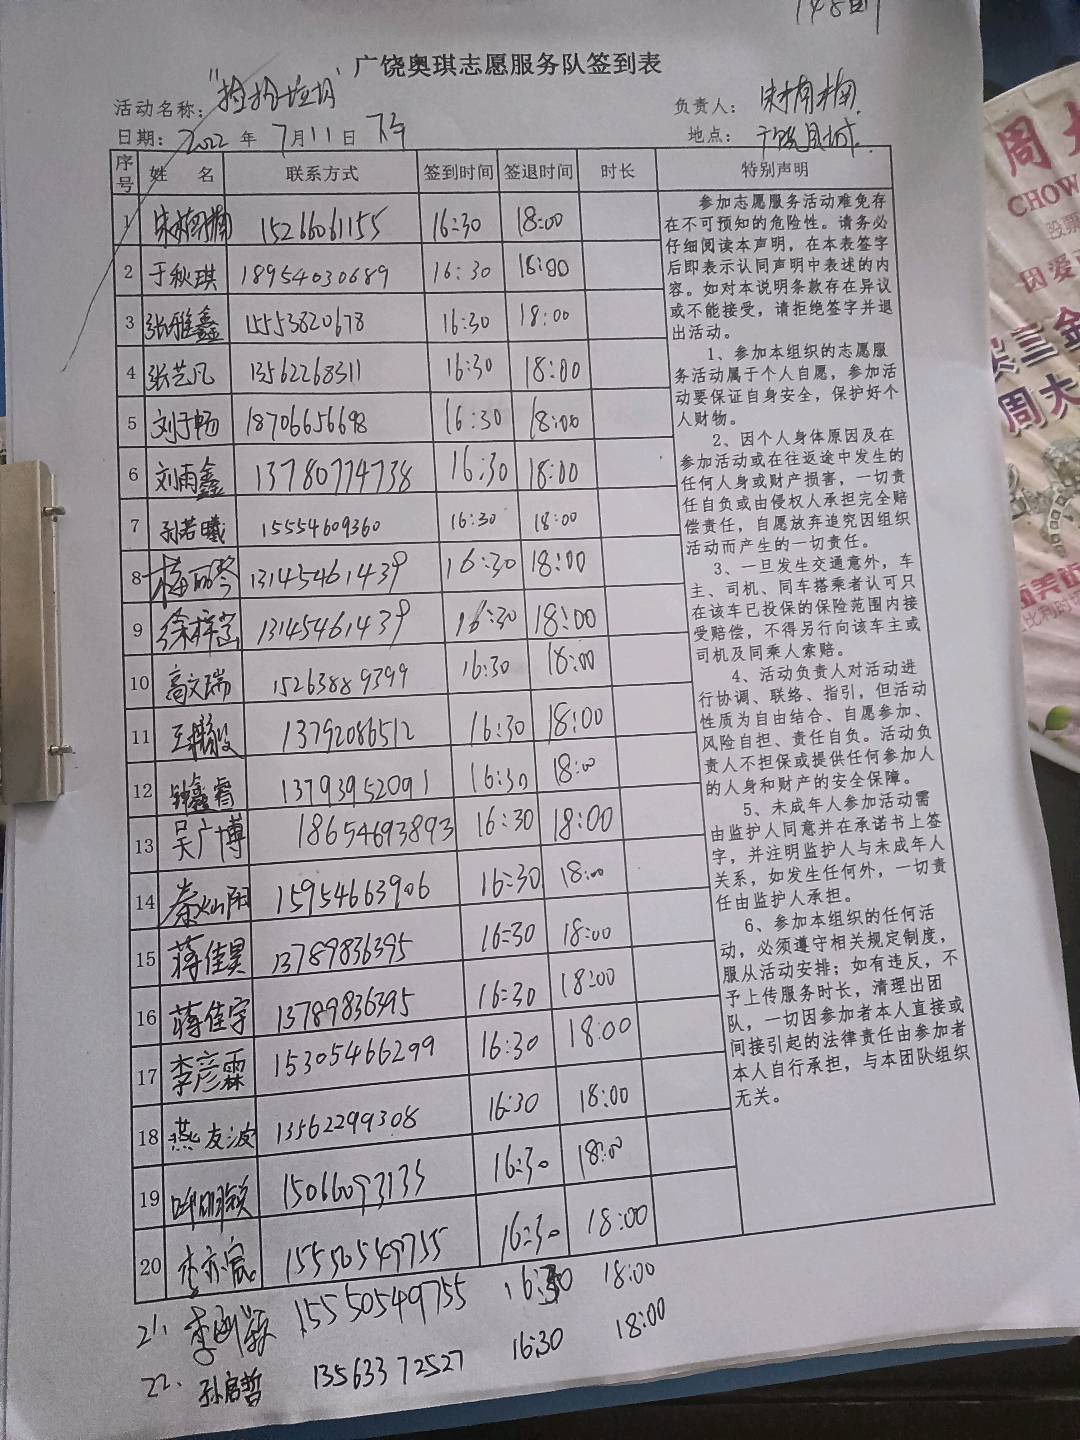 广饶奥琪志愿服务队签到表
活动名称：“捡拾垃圾”
负责人：
日期：2022年7月11日 下午
地点：广饶县城
序号 姓 名 联系方式 签到时间 签退时间 时长 特别声明
1 15266061155 16:30 18:00
2 于秋琪 18954030689 16:30 18:00
3 张雅鑫 15553820678 16:30 18:00
4 张艺凡 13562268311 16:30 18:00
5 刘于畅 18706656698 16:30 18:00
6 刘雨鑫 13780774738 16:30 18:00
7 孙若曦 15554609360 16:30 18:00
8 13145461439 16:30 18:00
9 徐梓 13145461439 16:30 18:00
10 高文瑞 15263889399 16:30 18:00
11 13792086512 16:30 18:00
12 鑫睿 13793952091 16:30 18:00
13 吴广博 18654693893 16:30 18:00
14 秦灿阳 15954663906 16:30 18:00
15 蒋佳昊 13789836395 16:30 18:00
16 蒋佳宇 13789836395 16:30 18:00
17 李彦霖 15305466299 16:30 18:00
18 燕友波 13562299308 16:30 18:00
19 15066093135 16:30 18:00
20 李亦宸 15550549755 16:30 18:00
21. 李 15550549755 16:30 18:00
22. 孙启哲 13563372527 16:30 18:00
参加志愿服务活动难免存
在不可预知的危险性。请务必
仔细阅读本声明，在本表签字
后即表示认同声明中表述的内
容。如对本说明条款存在异议
或不能接受，请拒绝签字并退
出活动。
1、参加本组织的志愿服
务活动属于个人自愿，参加活
动要保证自身安全，保护好个
人财物。
2、因个人身体原因及在
参加活动或在往返途中发生的
任何人身或财产损害，一切责
任自负或由侵权人承担完全赔
偿责任，自愿放弃追究因组织
活动而产生的一切责任。
3、一旦发生交通意外，车
主、司机、同车搭乘者认可只
在该车已投保的保险范围内接
受赔偿，不得另行向该车主或
司机及同乘人索赔。
4、活动负责人对活动进
行协调、联络、指引，但活动
性质为自由结合、自愿参加、
风险自担、责任自负。活动负
责人不担保或提供任何参加人
的人身和财产的安全保障。
5、未成年人参加活动需
由监护人同意并在承诺书上签
字，并注明监护人与未成年人
关系，如发生任何外，一切责
任由监护人承担。
6、参加本组织的任何活
动，必须遵守相关规定制度，
服从活动安排；如有违反，不
予上传服务时长，清理出团
队，一切因参加者本人直接或
间接引起的法律责任由参加者
本人自行承担，与本团队组织
无关。
周大
CHOW
股票
因爱
周大